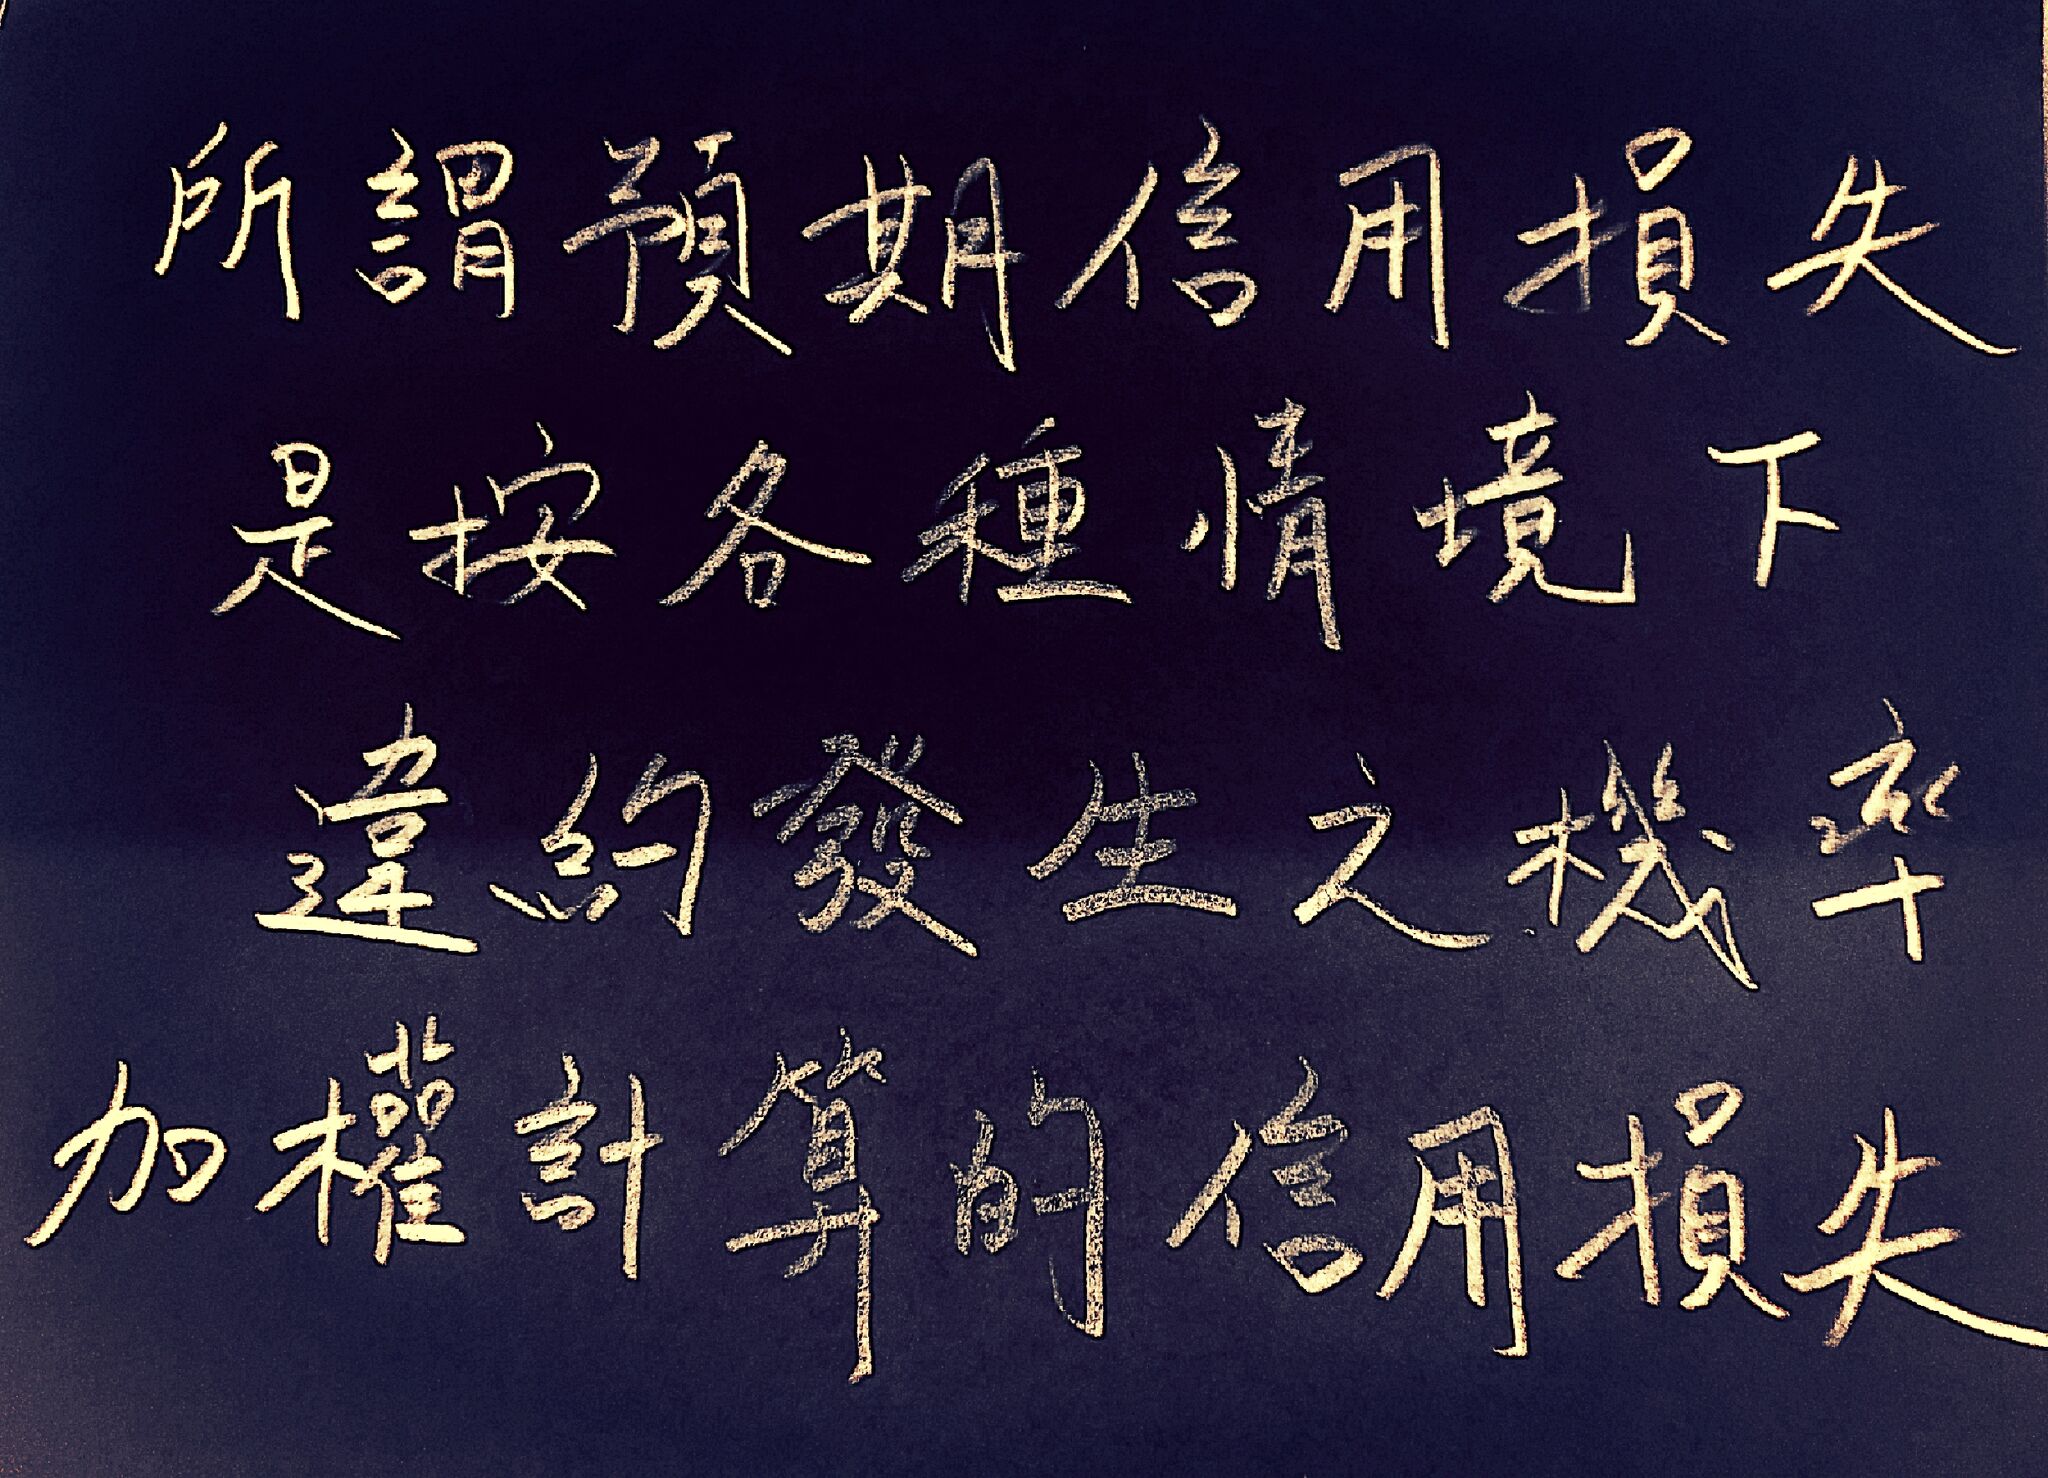 所謂預期信用損失
是按各種情境下
違約發生之機率
加權計算的信用損失